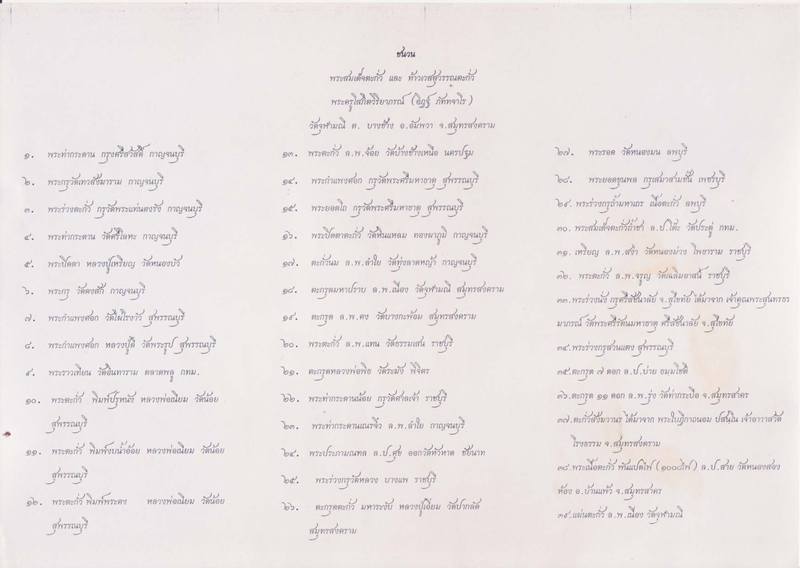 ชนวน
พระสมเด็จตะกั่ว และ ท้าวเวสสุวรรณตะกั่ว
พระครูโสภิตวิริยาภรณ์ (อิฏฐ์ ภัททจาโร)
วัดจุฬามณี ต. บางช้าง อ.อัมพวา จ.สมุทรสงคราม
๑. พระท่ากระดาน กรุงศรีสวัสดิ์ กาญจนบุรี
๒. พระกรุวัดเทวสังฆาราม กาญจนบุรี
๓. พระร่วงตะกั่ว กรุวัดพระแท่นดงรัง กาญจนบุรี
๔. พระท่ากระดาน วัดศรีโลหะ กาญจนบุรี
๕. พระปิดตา หลวงปู่เหรียญ วัดหนองบัว
๖. พระกรุ วัดดงสัก กาญจนบุรี
๗. พระกำแพงศอก วัดโผโรงวัว สุพรรณบุรี
๘. พระกำแพงศอก หลวงปู่ดี วัดพระรูป สุพรรณบุรี
๙. พระราวเทียน วัดอินทาราม ตลาดพลู กทม.
๑๐. พระตะกั่ว พิมพ์ปรุหนัง หลวงพ่อเนียม วัดน้อย
สุพรรณบุรี
๑๑. พระตะกั่ว พิมพ์งบน้ำอ้อย หลวงพ่อเนียม วัดน้อย
สุพรรณบุรี
๑๒. พระตะกั่ว พิมพ์พระคง หลวงพ่อเนียม วัดน้อย
สุพรรณบุรี
๑๓. พระตะกั่ว ล.พ.จ้อย วัดบางช้างเหนือ นครปฐม
๑๔. พระกำแพงศอก กรุวัดพระศรีมหาธาตุ สุพรรณบุรี
๑๕. พระยอดโถ กรุวัดพระศรีมหาธาตุ สุพรรณบุรี
๑๖. พระปิดตาตะกั่ว วัดหินแหลม ทองผาภูมิ กาญจนบุรี
๑๗. ตะกั่วนม ล.พ.ลำใย วัดทุ่งลาดหญ้า กาญจนบุรี
๑๘. ตะกรุดมหาปราบ ล.พ.เนื่อง วัดจุฬามณี สมุทรสงคราม
๑๙. ตะกรุด ล.พ.คง วัดบางกะพ้อม สมุทรสงคราม
๒๐. พระตะกั่ว ล.พ.แทน วัดธรรมเสน ราชบุรี
๒๑. ตะกรุดหลวงพ่อพิธ วัดระฆัง พิจิตร
๒๒. พระท่ากระดานน้อย กรุวัดศาลเจ้า ราชบุรี
๒๓. พระท่ากระดานเณรจิ๋ว ล.พ.ลำใย กาญจนบุรี
๒๔. พระประภามณฑล ล.ป.ศุข ออกวัดหัวหาด ชัยนาท
๒๕. พระร่วงกรุวัดหลวง บางแพ ราชบุรี
๒๖. ตะกรุดตะกั่ว มหาระงับ หลวงปู่เอี่ยม วัดปากลัด
สมุทรสงคราม
๒๗. พระรอด วัดหนองมน ลพบุรี
๒๘. พระยอดขุนพล กรุเสมาสามชั้น เพชรบุรี
๒๙. พระร่วงกรุถ้ำมหาเถร เนื้อตะกั่ว ลพบุรี
๓๐. พระสมเด็จตะกั่วถ้ำชา ล.ป.โต๊ะ วัดประดู่ กทม.
๓๑. เหรียญ ล.พ.สง่า วัดหนองม่วง โพธาราม ราชบุรี
๓๒. พระตะกั่ว ล.พ.จรูญ วัดเฉลิมอาสน์ ราชบุรี
๓๓. พระร่วงนั่ง กรุศรีสัชนาลัย จ.สุโขทัย ได้มาจาก เจ้าคุณพระสุนทรธร
มาภรณ์ วัดพระศรีรัตนมหาธาตุ ศรีสัชนาลัย จ.สุโขทัย
๓๔. พระร่วงกรุสวนแตง สุพรรณบุรี
๓๕. ตะกรุด ๗ ดอก ล.ป.บ่าย ธมฺมโชติ
๓๖. ตะกรุด ๑๑ ดอก ล.พ.รุ่ง วัดท่ากระบือ จ.สมุทรสาคร
๓๗. ตะกั่วสังฆวานร ได้มาจาก พระใบฎีกาถนอม ปสนฺโน เจ้าอาวาสวัด
โรงธรรม จ.สมุทรสงคราม
๓๘. พระเนื้อตะกั่ว พันแปดไฟ (๑๐๐๘ไฟ) ล.ป.สาย วัดหนองสอง
ห้อง อ.บ้านแพ้ว จ.สมุทรสาคร
๓๙. แผ่นตะกั่ว ล.พ.เนื่อง วัดจุฬามณี